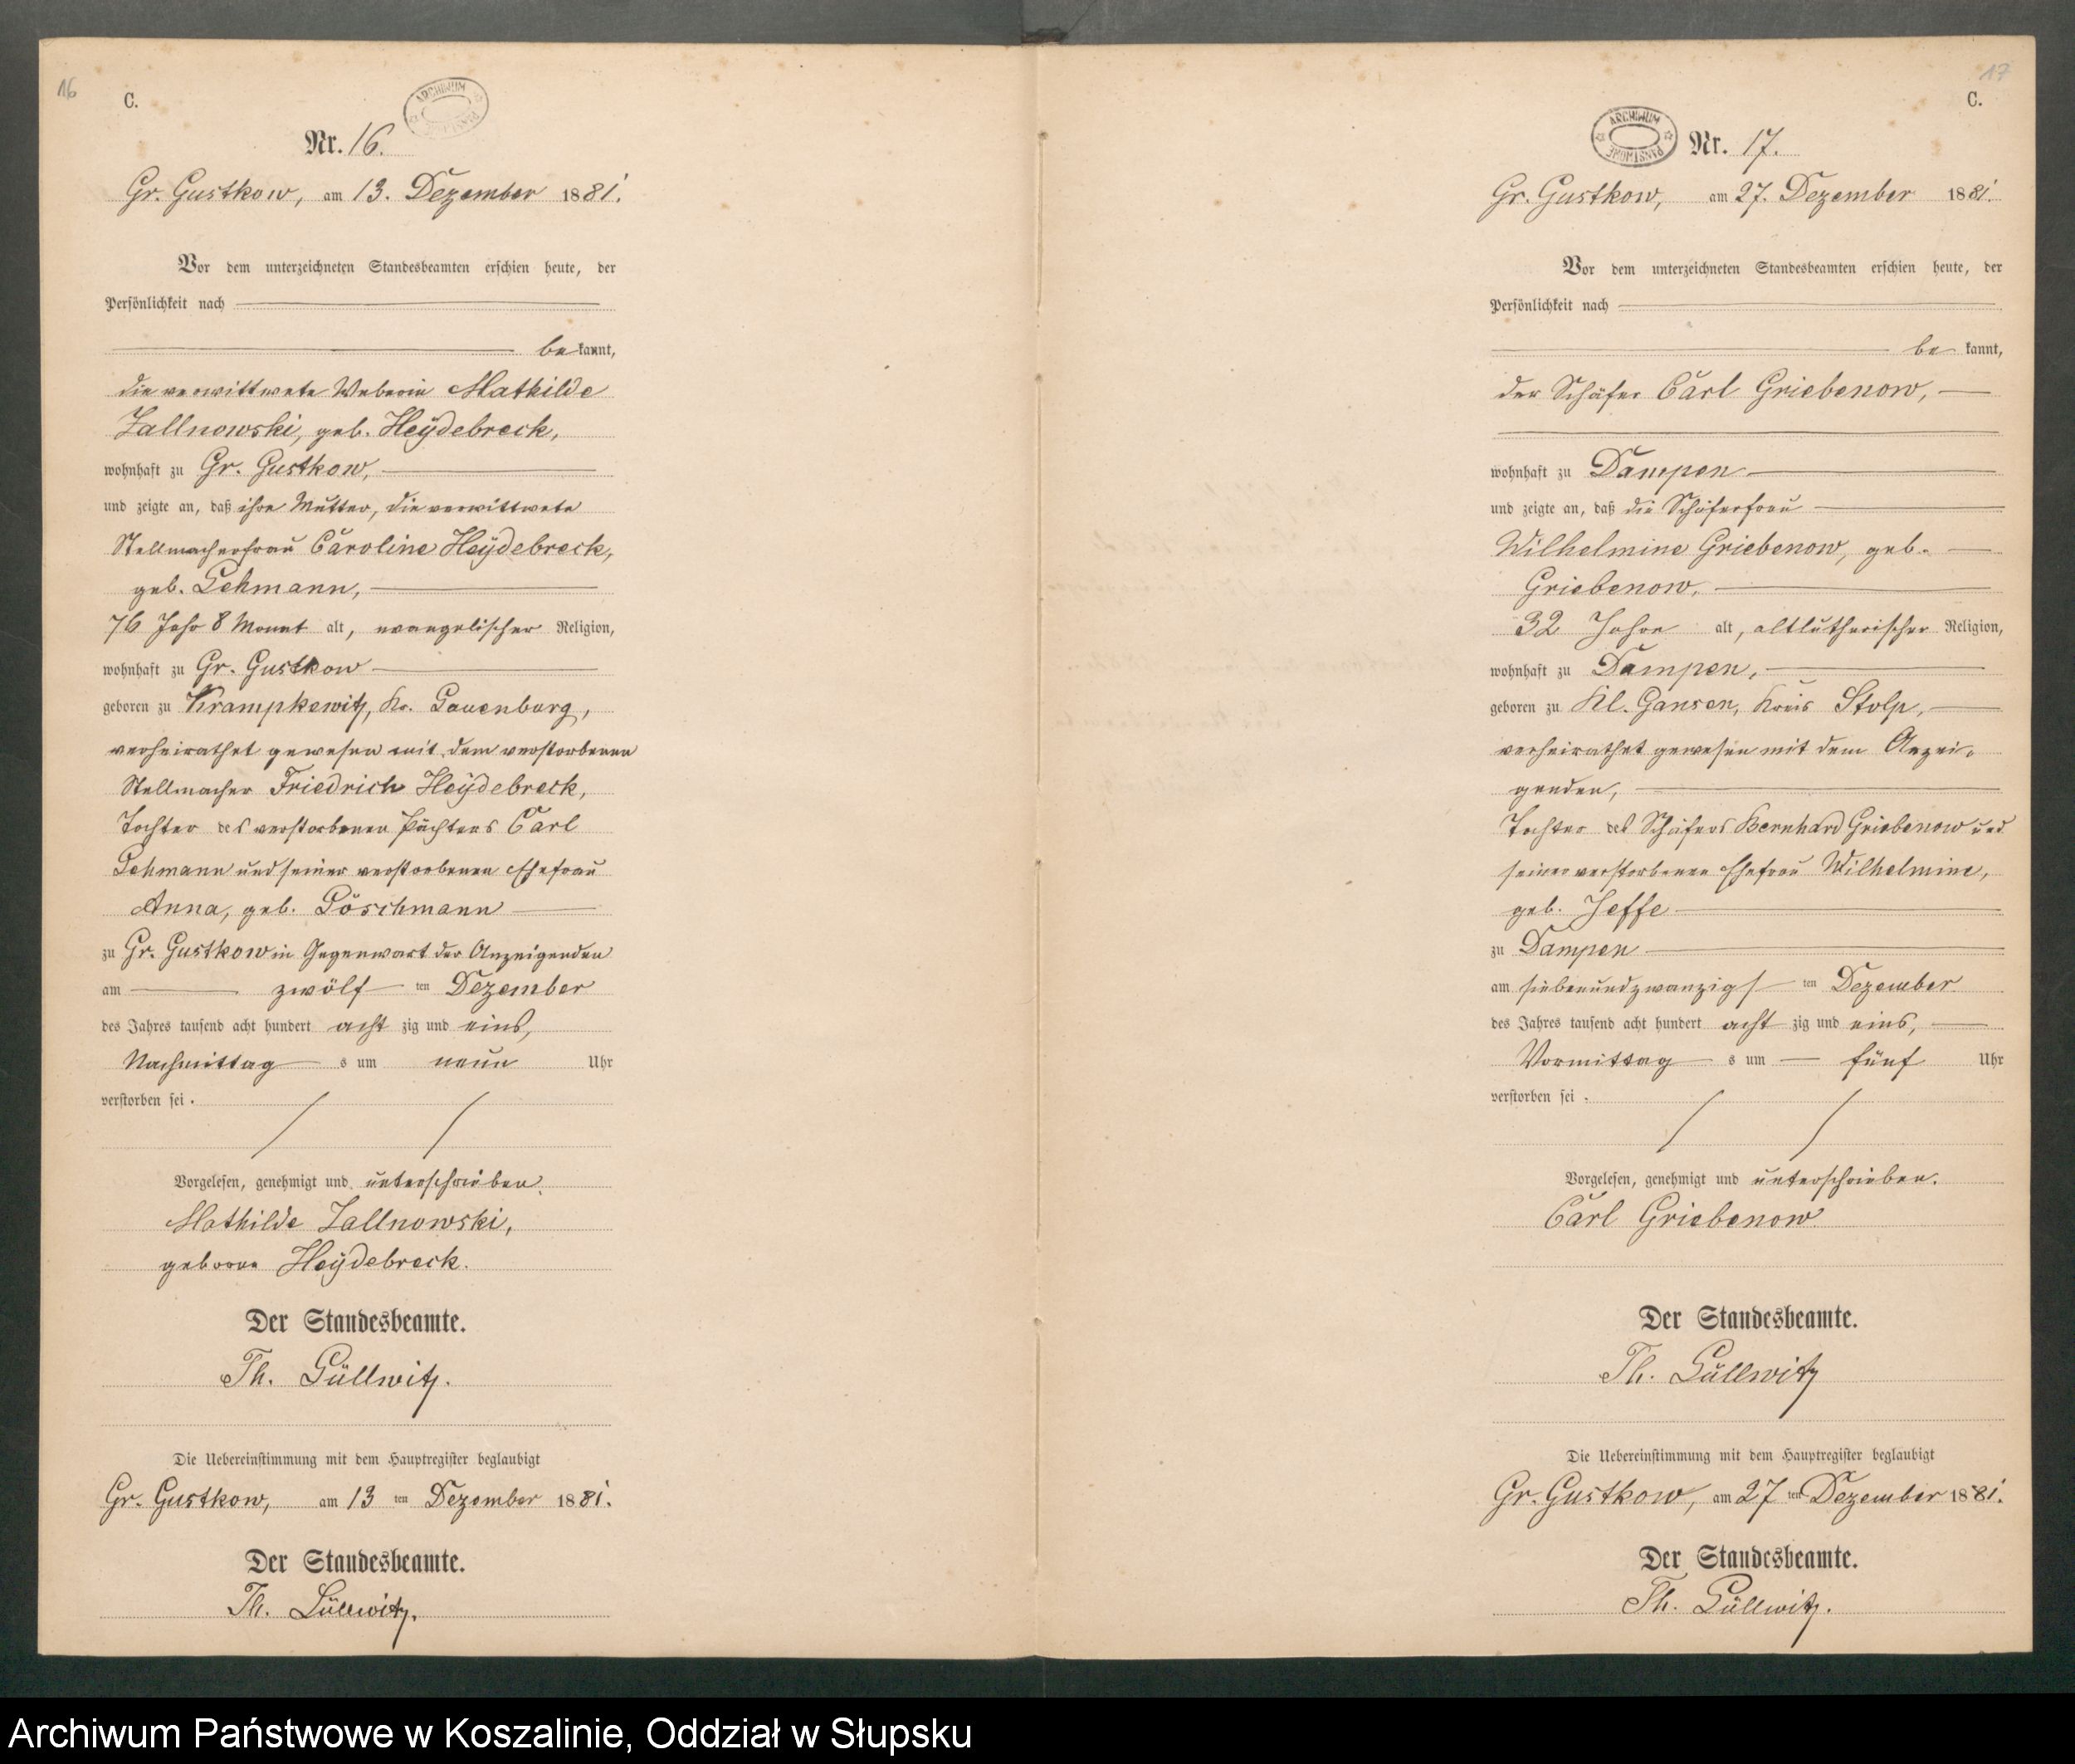 16
C.
ARCHIWUM PAŃSTWOWE
Nr. 16.
Gr. Gustkow, am 13. Dezember 1881.
Vor dem unterzeichneten Standesbeamten erschien heute, der
Persönlichkeit nach
bekannt,
die verwittwete Weberin Mathilde
Zallnowski, geb. Heÿdebreck,
wohnhaft zu Gr. Gustkow,
und zeigte an, daß ihre Mutter, die verwittwete
Stellmacherfrau Caroline Heÿdebreck,
geb. Lehmann,
76 Jahr 8 Monat alt, evangelischer Religion,
wohnhaft zu Gr. Gustkow
geboren zu Krampkewitz, Kr. Lauenburg,
verheirathet gewesen mit dem verstorbenen
Stellmacher Friedrich Heÿdebreck,
Tochter des verstorbenen Pächters Carl
Lehmann und seiner verstorbenen Ehefrau
Anna, geb. Pöschmann
zu Gr. Gustkow in Gegenwart der Anzeigenden
am zwölf ten Dezember
des Jahres tausend acht hundert acht zig und eins,
Nachmittag s um neun Uhr
verstorben sei.
Vorgelesen, genehmigt und unterschrieben.
Mathilde Zallnowski,
geborne Heÿdebreck.
Der Standesbeamte.
Th. Lüllwitz.
Die Uebereinstimmung mit dem Hauptregister beglaubigt
Gr. Gustkow, am 13 ten Dezember 1881.
Der Standesbeamte.
Th. Lüllwitz.
17
C.
ARCHIWUM PAŃSTWOWE
Nr. 17.
Gr. Gustkow, am 27. Dezember 1881.
Vor dem unterzeichneten Standesbeamten erschien heute, der
Persönlichkeit nach
be kannt,
der Schäfer Carl Griebenow,
wohnhaft zu Dampen
und zeigte an, daß die Schäferfrau
Wilhelmine Griebenow, geb.
Griebenow,
32 Jahre alt, altlutherischer Religion,
wohnhaft zu Dampen,
geboren zu Kl. Gansen, Kreis Stolp,
verheirathet gewesen mit dem Anzei-
genden,
Tochter des Schäfers Bernhard Griebenow und
seiner verstorbenen Ehefrau Wilhelmine,
geb. Jeffe
zu Dampen
am siebenundzwanzigs ten Dezember
des Jahres tausend acht hundert acht zig und eins,
Vormittag s um fünf Uhr
verstorben sei.
Vorgelesen, genehmigt und unterschrieben.
Carl Griebenow
Der Standesbeamte.
Th. Lüllwitz
Die Uebereinstimmung mit dem Hauptregister beglaubigt
Gr. Gustkow, am 27 ten Dezember 1881.
Der Standesbeamte.
Th. Lüllwitz.
Archiwum Państwowe w Koszalinie, Oddział w Słupsku